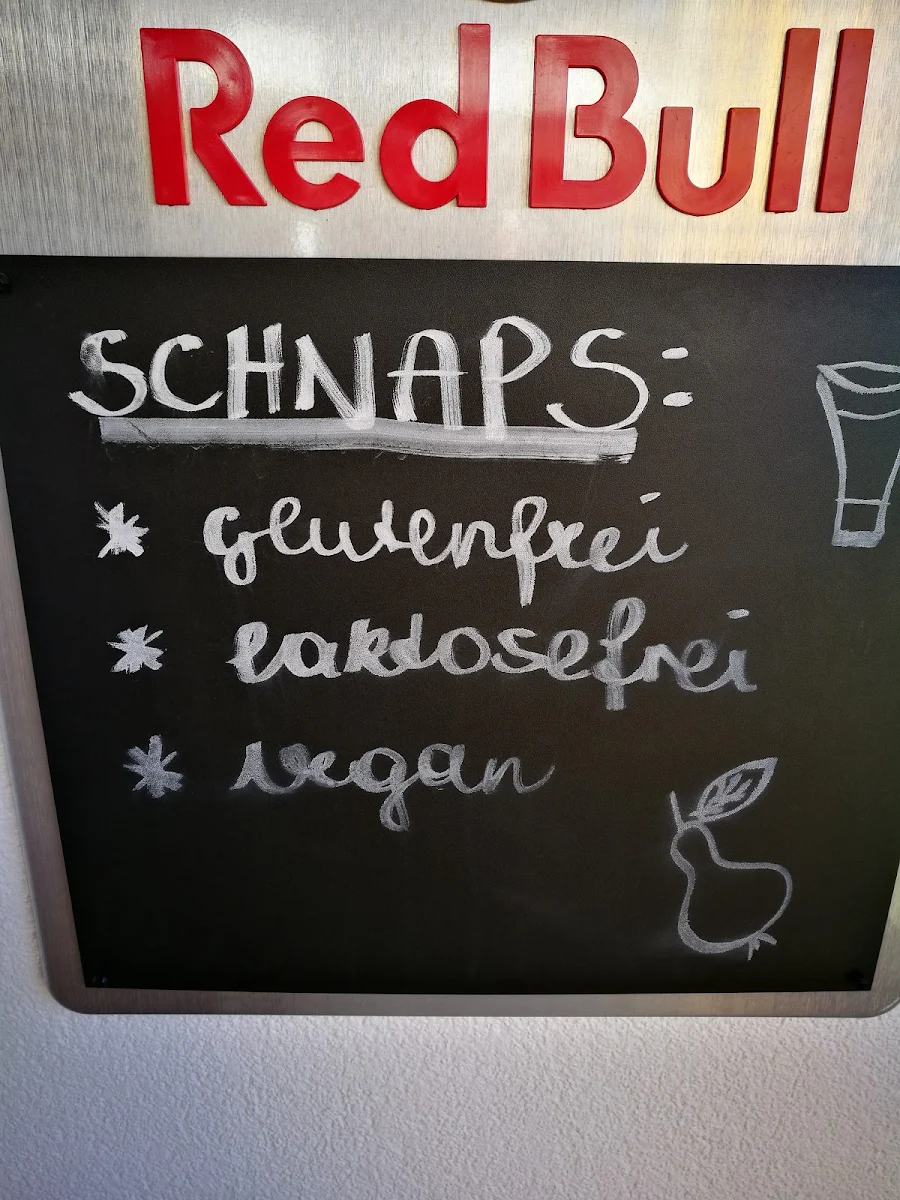 Red Bull
SCHNAPS:
* glutenfrei
* laktosefrei
* vegan